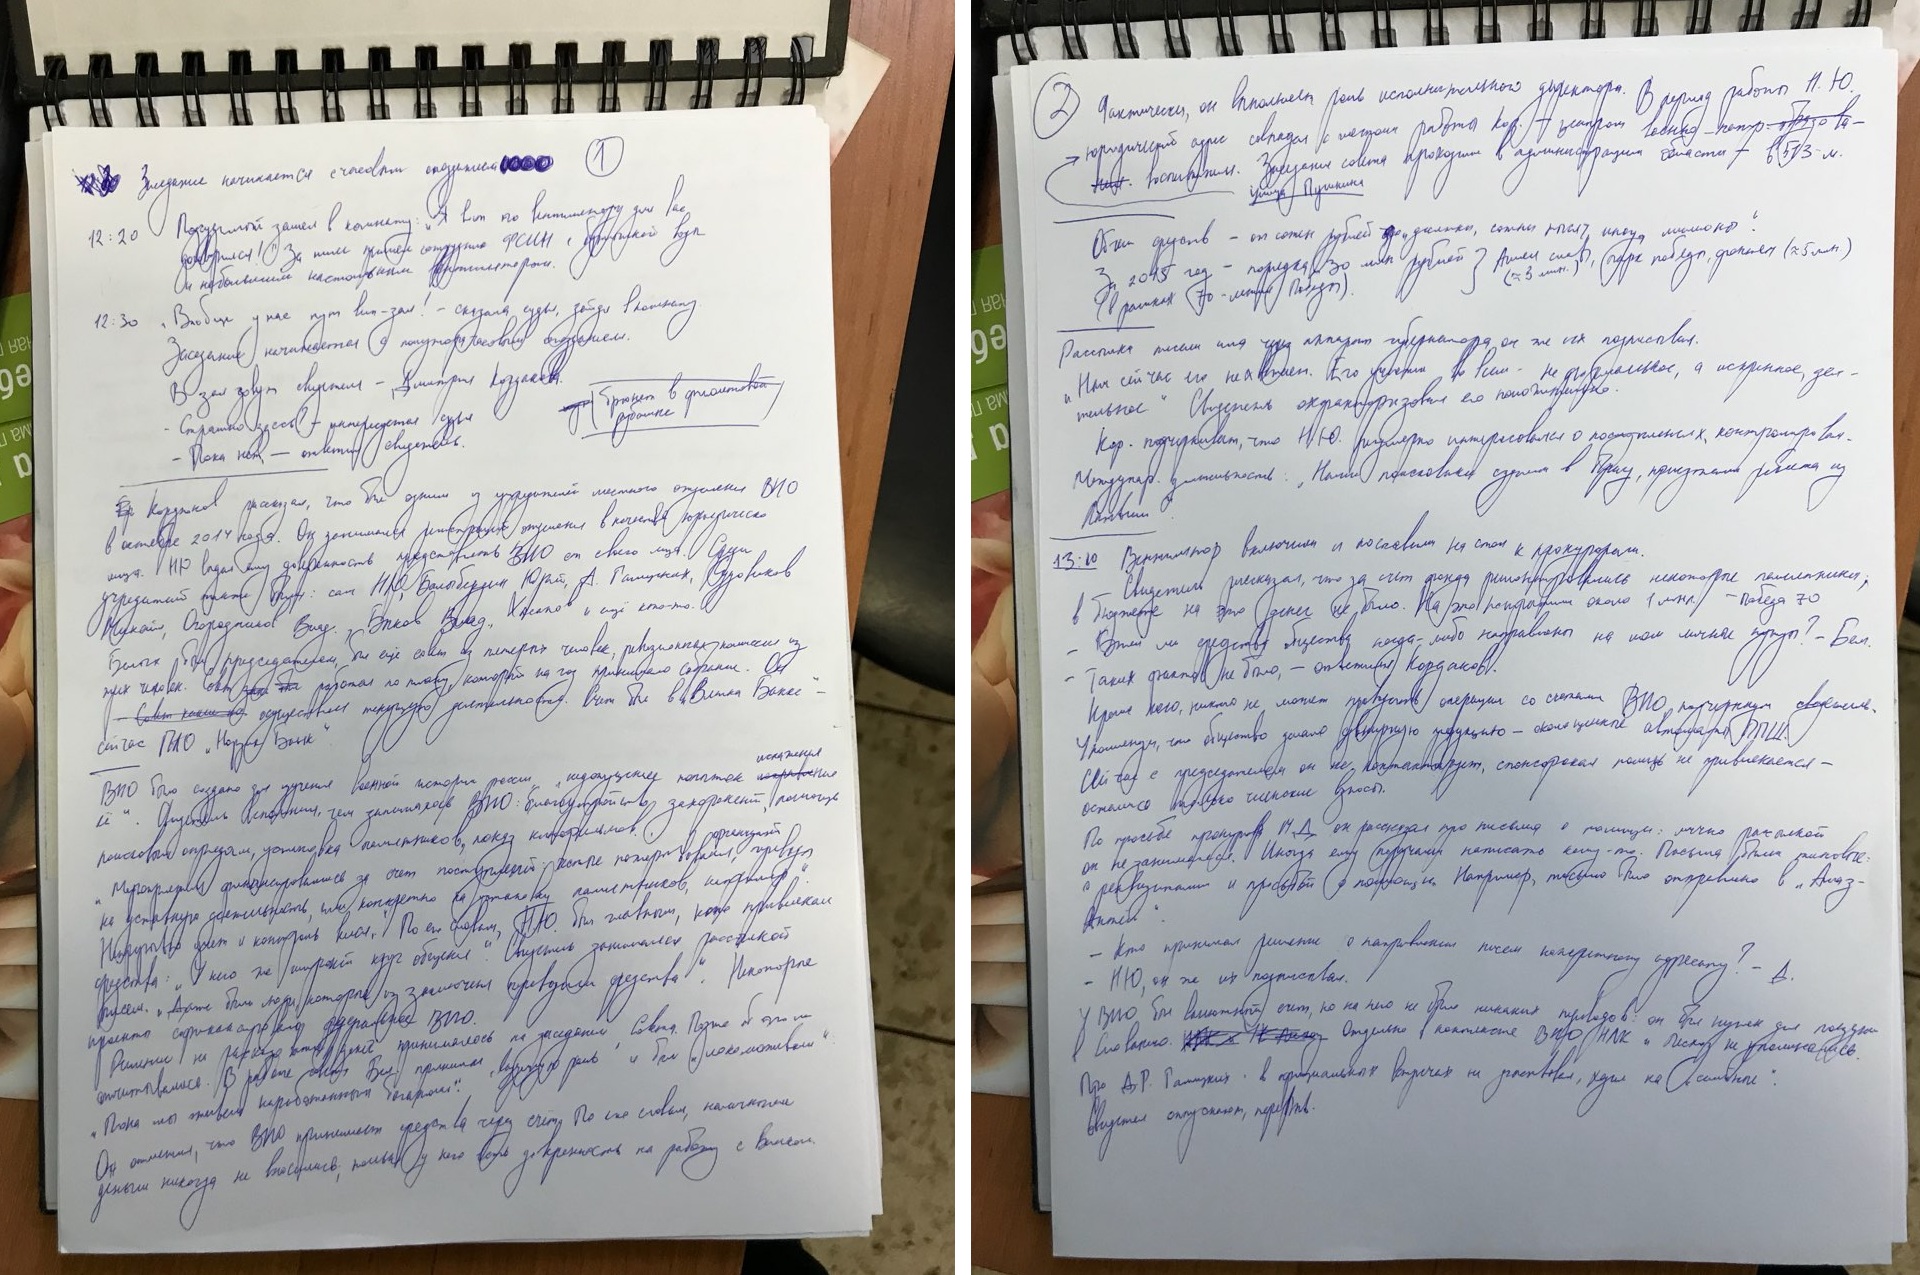 Заседание начинается с часовым опозданием
1
12:20 Подсудимый зашел в комнату: "Я вот по вентилятору для вас
договорился!" За ним пришел сотрудник ФСИН с бутылкой воды
и небольшим настольным вентилятором.
12:30 "Вообще у нас тут вип-зал! - сказала судья, зайдя в комнату
Заседание начинается с полуторачасовым опозданием.
В зал зовут свидетеля - Дмитрия Кордакова.
(брюнет в фиолетовой
рубашке
- Страшно здесь? - интересуется судья
- Пока нет, - ответил свидетель.
Кордаков рассказал, что был одним из учредителей местного отделения ВИО
в октябре 2014 года. Он занимался регистрацией отделения в качестве юридическо
лица. НЮ выдал ему доверенность представлять ВИО от своего лица. Среди
учредителей также были: сам НЮ, Балыбердин Юрий, А. Галицких, Судовиков
Михаил, Огородников Влад., Быков Влад., и ещё кто-то.
Белых был председателем, был еще совет из четырех человек, ревизионная комиссия из
трех человек. работал по плану, который на год принимало собрание. Он
осуществлял текущую деятельность. Счет был в "Вятка Банке" -
сейчас ПАО "Норвик Банк".
ВИО было создано для изучения военной истории россии, "недопущение попыток искажения
её". Свидетель вспомнил, чем занималось ВИО: благоустройство захоронений, помощь
поисковым отрядам, установка памятников, показ кинофильмов.
"Мероприятия финансировались за счет поступлений: кроме пожертвований,
на уставную деятельность, или конкретно на установку памятников, например".
учет и контроль По его словам, НЮ. был главным, кто привлекал
средства: "У него же широкий круг общения". Свидетель занимался рассылкой
писем. "Даже были люди, которые из заключения переводили средства". Некоторые
проекты ВИО.
Решение на расход принималось на заседании Совета. Позже об этом
отчитывались. В работе Бел. принимал "ведущую роль" и был "локомотивом".
"Пока мы живем наработанным багажом".
Он отметил, что ВИО принимает средства через счет. По его словам, наличными
деньги никогда не вносились, только у него есть доверенность на работу с банком.
2
Фактически, он выполняет роль исполнительного директора. В период работы Н.Ю.
юридический адрес совпадал с местом работы Кор. - центром военно-патр.
воспитания. Заседания совета проходили в администрации области - в 513-м.
улица Пушкина
Объем средств - от сотен рублей "десятки, сотни тысяч, иногда миллионы".
За 2015 год - порядка 30 млн рублей } Аллея славы, парк победы, фонтан (≈5 млн.)
(в рамках 70-летия Победы). (≈3 млн.)
Рассылка писем шла через аппарат губернатора, он же их подписывал.
"Нам сейчас его не хватает. Его участие во всем - не формальное, а искреннее, дея-
тельное". Свидетель охарактеризовал его положительно.
Кор. подчеркивает, что Н.Ю. регулярно интересовался о поступлениях, контролировал.
Междунар. деятельность: "Наши поисковики ездили в приезжали ребята из
Латвии".
13:10 Вентилятор включили и поставили на стол к прокурорам.
Свидетель рассказал, что за счет фонда ремонтировались некоторые памятники,
в бюджете на это денег не было. На это потратили около 1 млн. - Победа 70
- Были ли средства общества когда-либо направлены на или личные нужды? - Бел.
- Таких фактов не было, - ответил Кордаков.
Кроме него, никто не может проводить операции со счетами ВИО, подчеркнул свидетель.
Упомянул, что общество делало продукцию - охолощенные автоматы ППШ.
Сейчас с председателем он не контактирует, спонсорская помощь не привлекается -
остались только членские взносы.
По просьбе прокурора М.Д. он рассказал про письма о помощи: лично рассылкой
он не занимался. Иногда ему поручали написать кому-то. Письма были типовые:
с реквизитами и просьбой о помощи. Например, письмо было отправлено в "Алмаз-
Антей".
- Кто принимал решение о направлении писем конкретному адресату? - Д.
- НЮ, он же их подписывал.
У ВИО был валютный счет, но на него не было никаких переводов: он был нужен для поездки
в Словакию. Отдельно в контексте ВИО НЛК "лесхоз" не упоминались.
Про А.Р. Галицких - в официальных встречах не участвовал, ходил на
Свидетеля отпускают, перерыв.